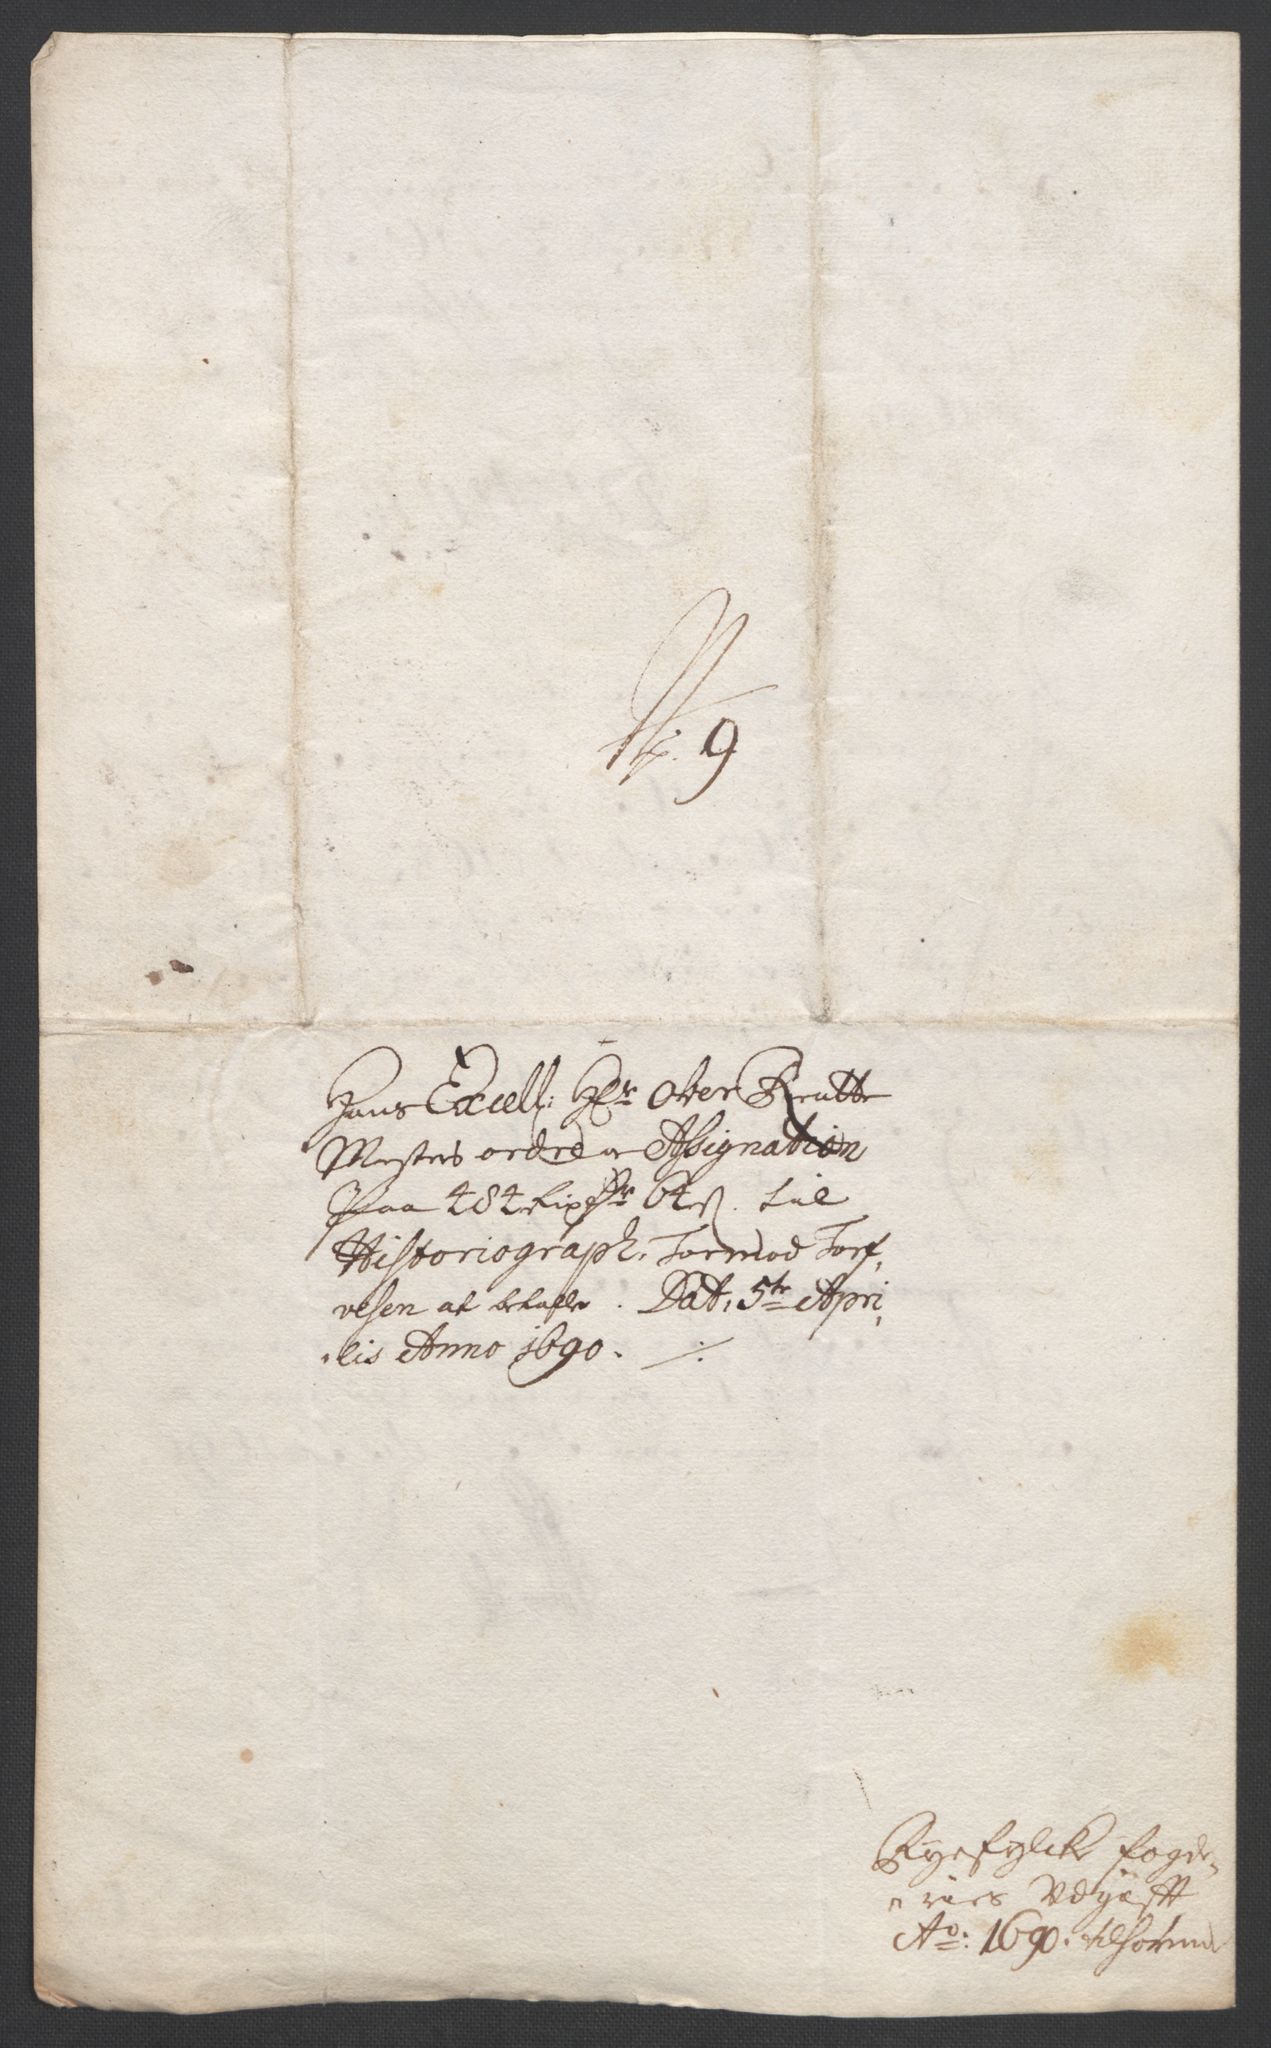 N: 9
Hans Excell: Hr Ober Rentte
Mesters ordre oc Assignation
Paa 484 Rixdr 64 ß. til
Historiograph. Tormod Torf,
vesen at betahle. Dat, 5te Apri,
,lis Anno 1690.
Ryefylcke fogde,
,ries Udgifft
Ao: 1690. tilhørend